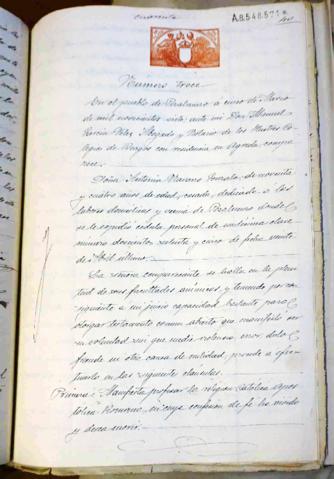 cuarenta
A8.548.571
Número trece
En el pueblo de a cinco de Marzo
de mil novecientos veinte, ante mí Don Manuel
García Abogado y Notario de los Ilustres Co-
legios de Burgos con residencia en Agreda, compa-
rece:
Doña Antonia Navarro de noventa
y cuatro años de edad, casada, dedicada a las
labores domésticas y vecina de donde
se le expidió cédula personal de undécima clase
número doscientos setenta y cinco de fecha veinte
de Abril último.
La señora compareciente se halla en la pleni-
tud de sus facultades anímicas, y teniendo por con-
siguiente a mi juicio capacidad bastante para
otorgar testamento común abierto que manifiesta ser
su voluntad sin que medie violencia, error, dolo,
fraude ni otra causa de nulidad, procede a efec-
tuarlo en las siguientes cláusulas.
Primera: Manifiesta profesar la religión Católica Apos-
tólica Romana, en cuya confesión de fe ha vivido
y desea morir.